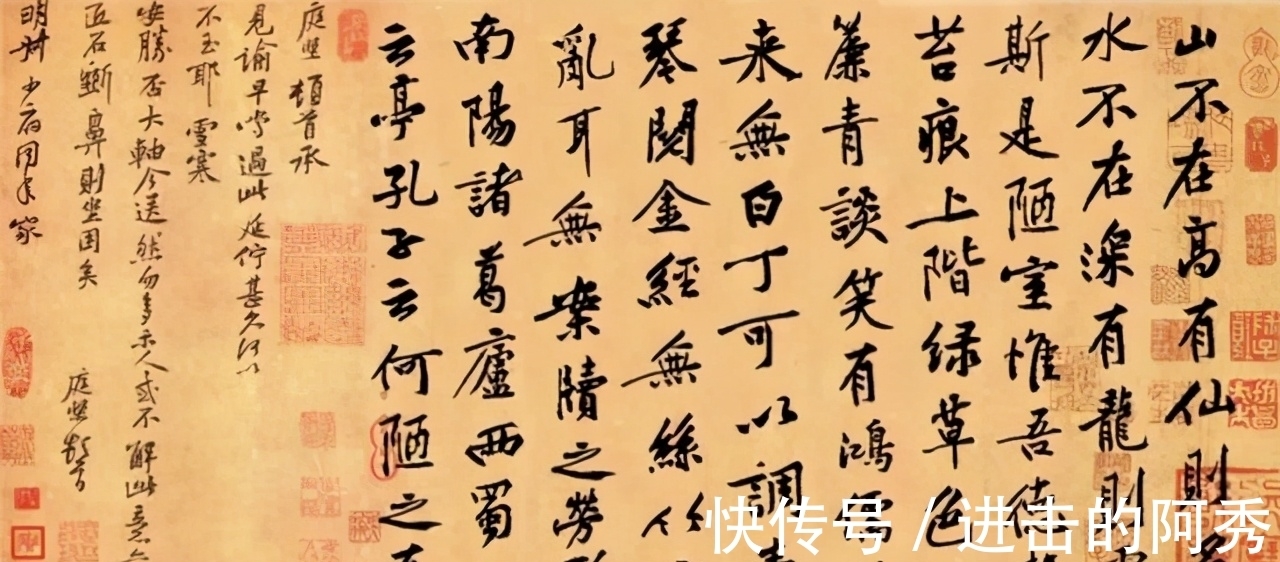 山不在高有仙則名
水不在深有龍則
斯是陋室惟吾德
苔痕上階緑草色
簾青談笑有鴻儒
来無白丁可以調素
琴閱金經無絲竹
亂耳無案牘之勞形
南陽諸葛廬西蜀
云亭孔子云何陋之有
庭堅頓首承
見諭早嘗過此延佇甚久何以
不至耶雪寒
安勝否大軸今送然勿多示人或不解此意
匠石斲鼻則坐困矣
庭堅頓首
明叔少府同年家
快传号 / 进击的阿秀